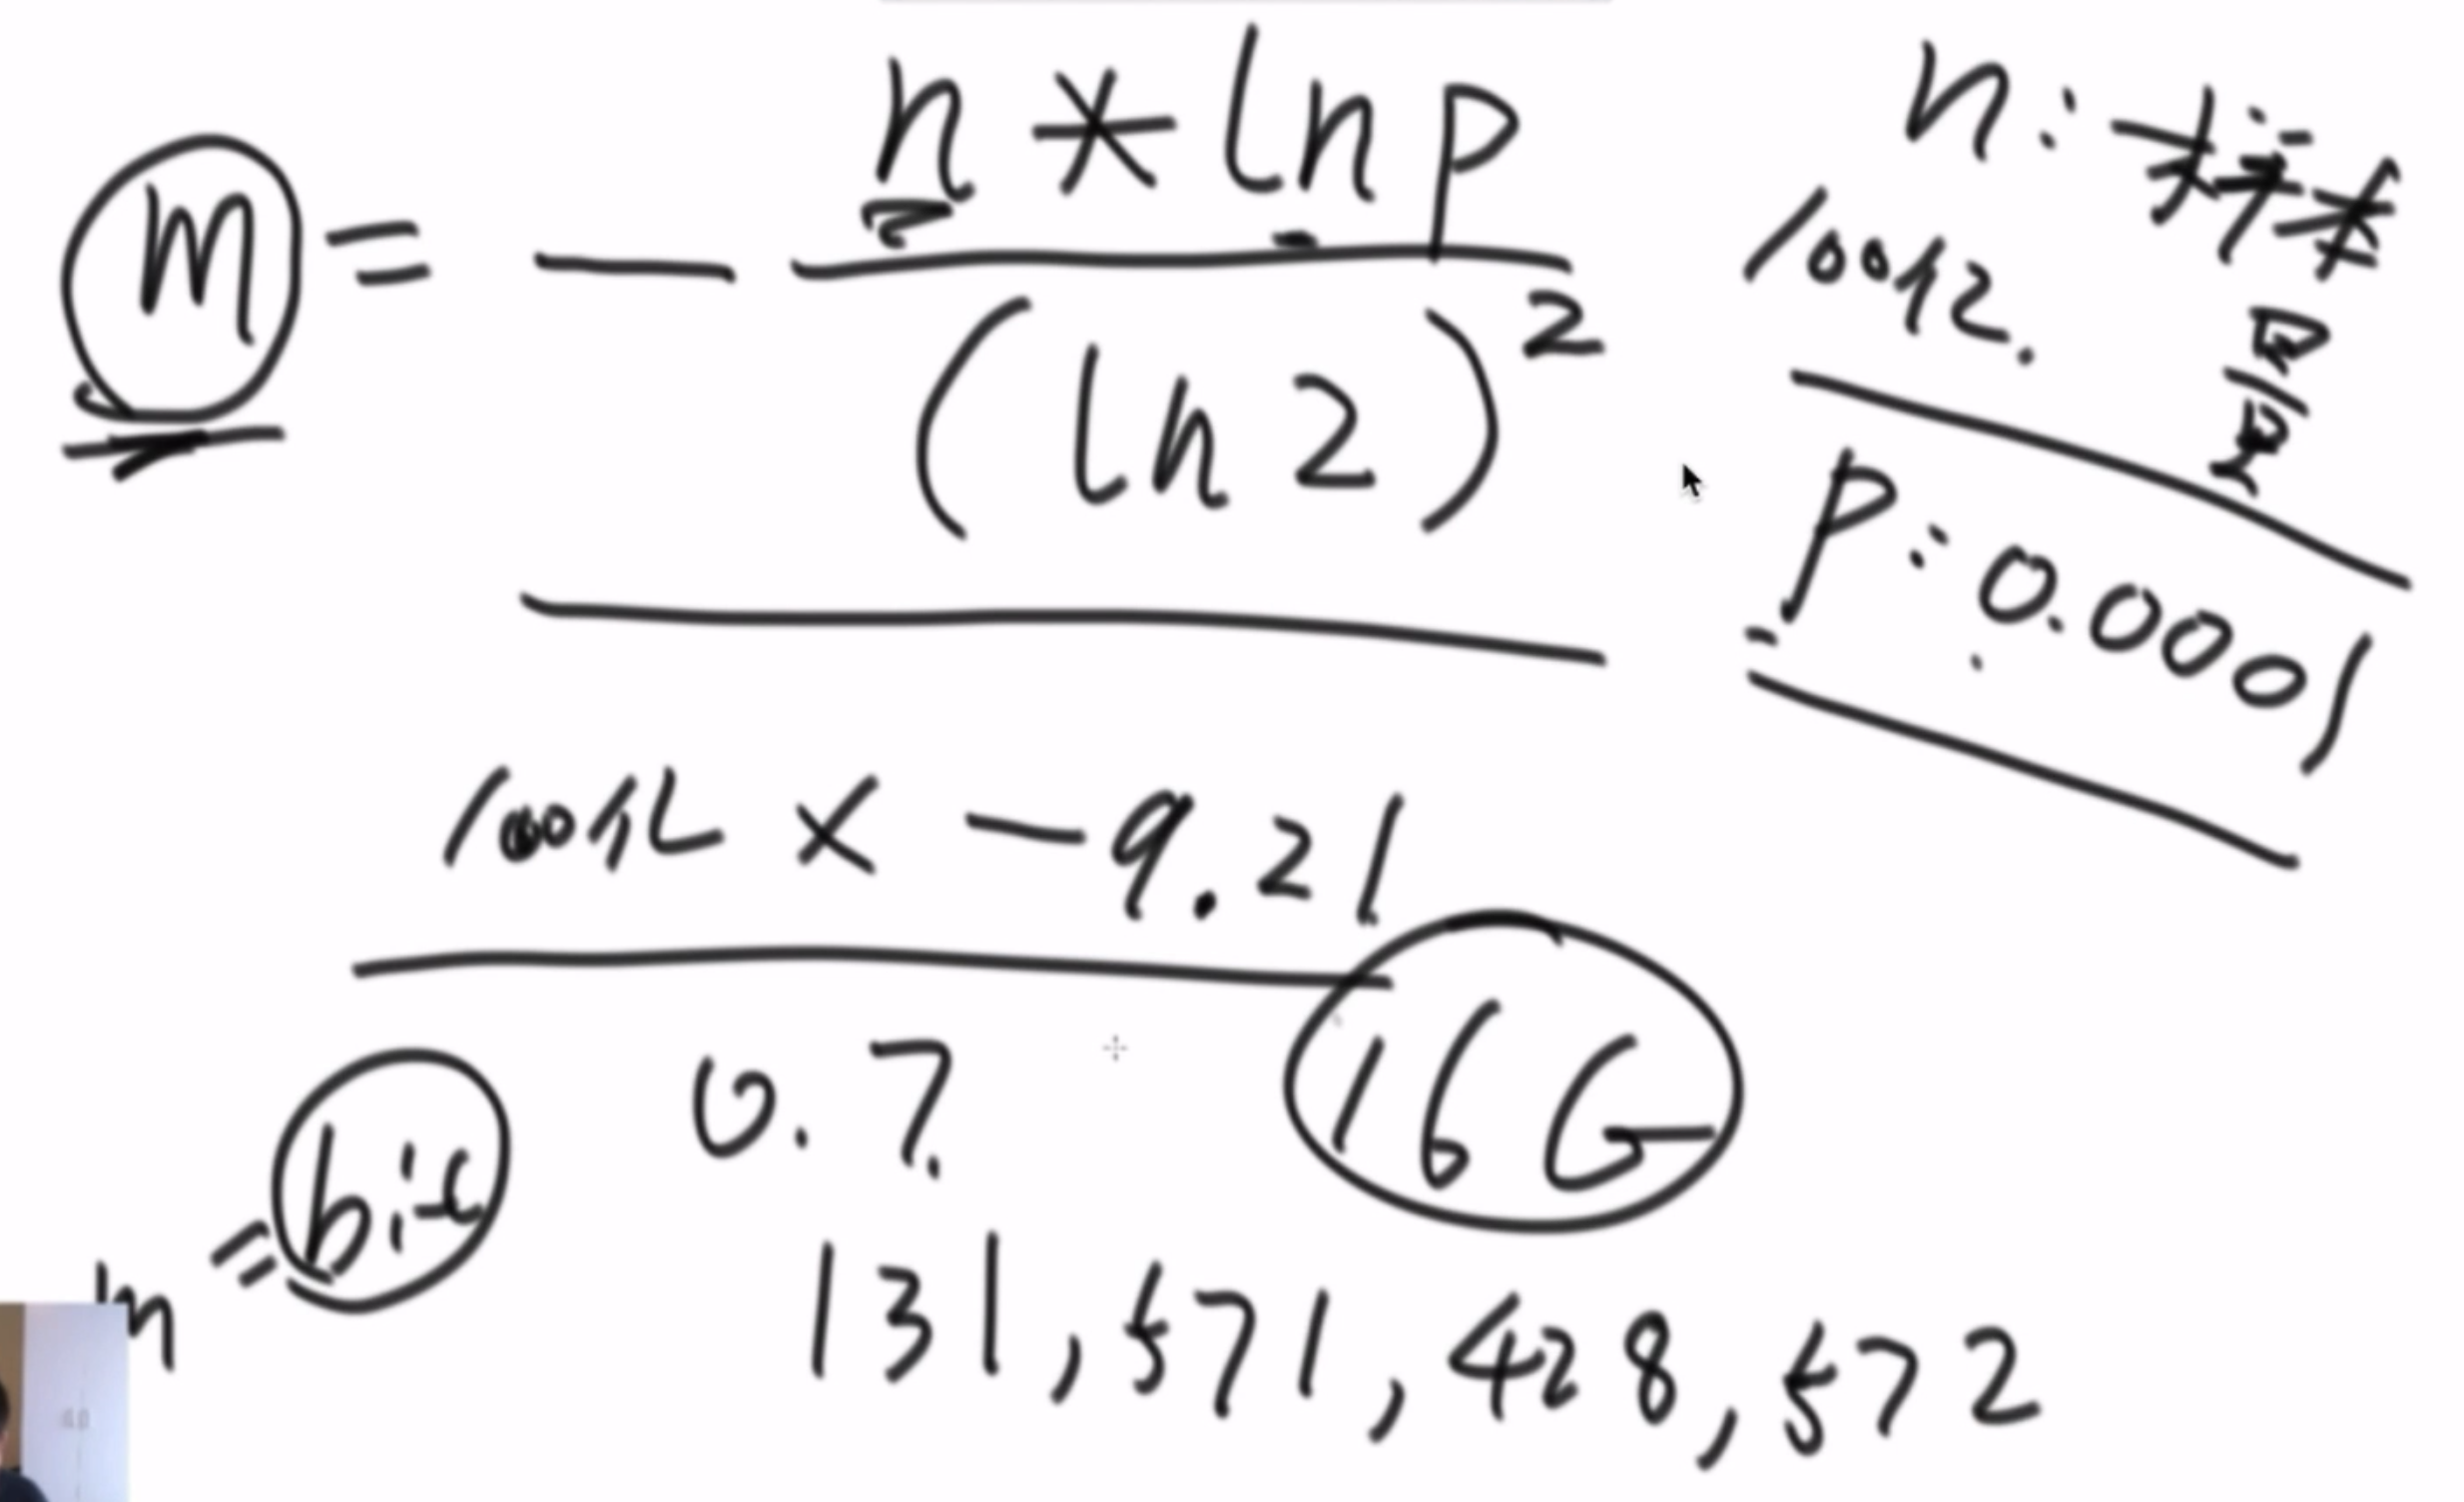 m = — n * ln p
(ln 2)²
n: 样本量
100亿.
p: 0.0001
100亿 × -9.21
0.7.
16G
m = bit
131,571,428,572